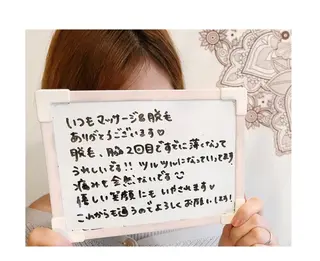 いつもマッサージ&脱毛
ありがとうございます♡
脱毛、脇2回目ですでに薄くなって
うれしいです!! ツルツルになっていってます
痛みも全然ないです
優しい笑顔にもいやされます♡
これからも通うのでよろしくお願いします!